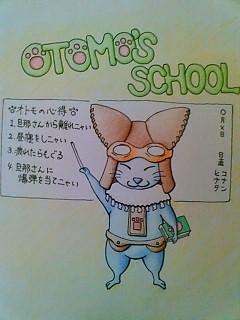 OTOMO'S
SCHOOL
オトモの心得
1.旦那さんから離れニャい
2.昼寝をしニャい
3.潰れたらもぐる
4.旦那さんに
爆弾を当てニャい
〇月×日
日直
コナン
ヒナタ